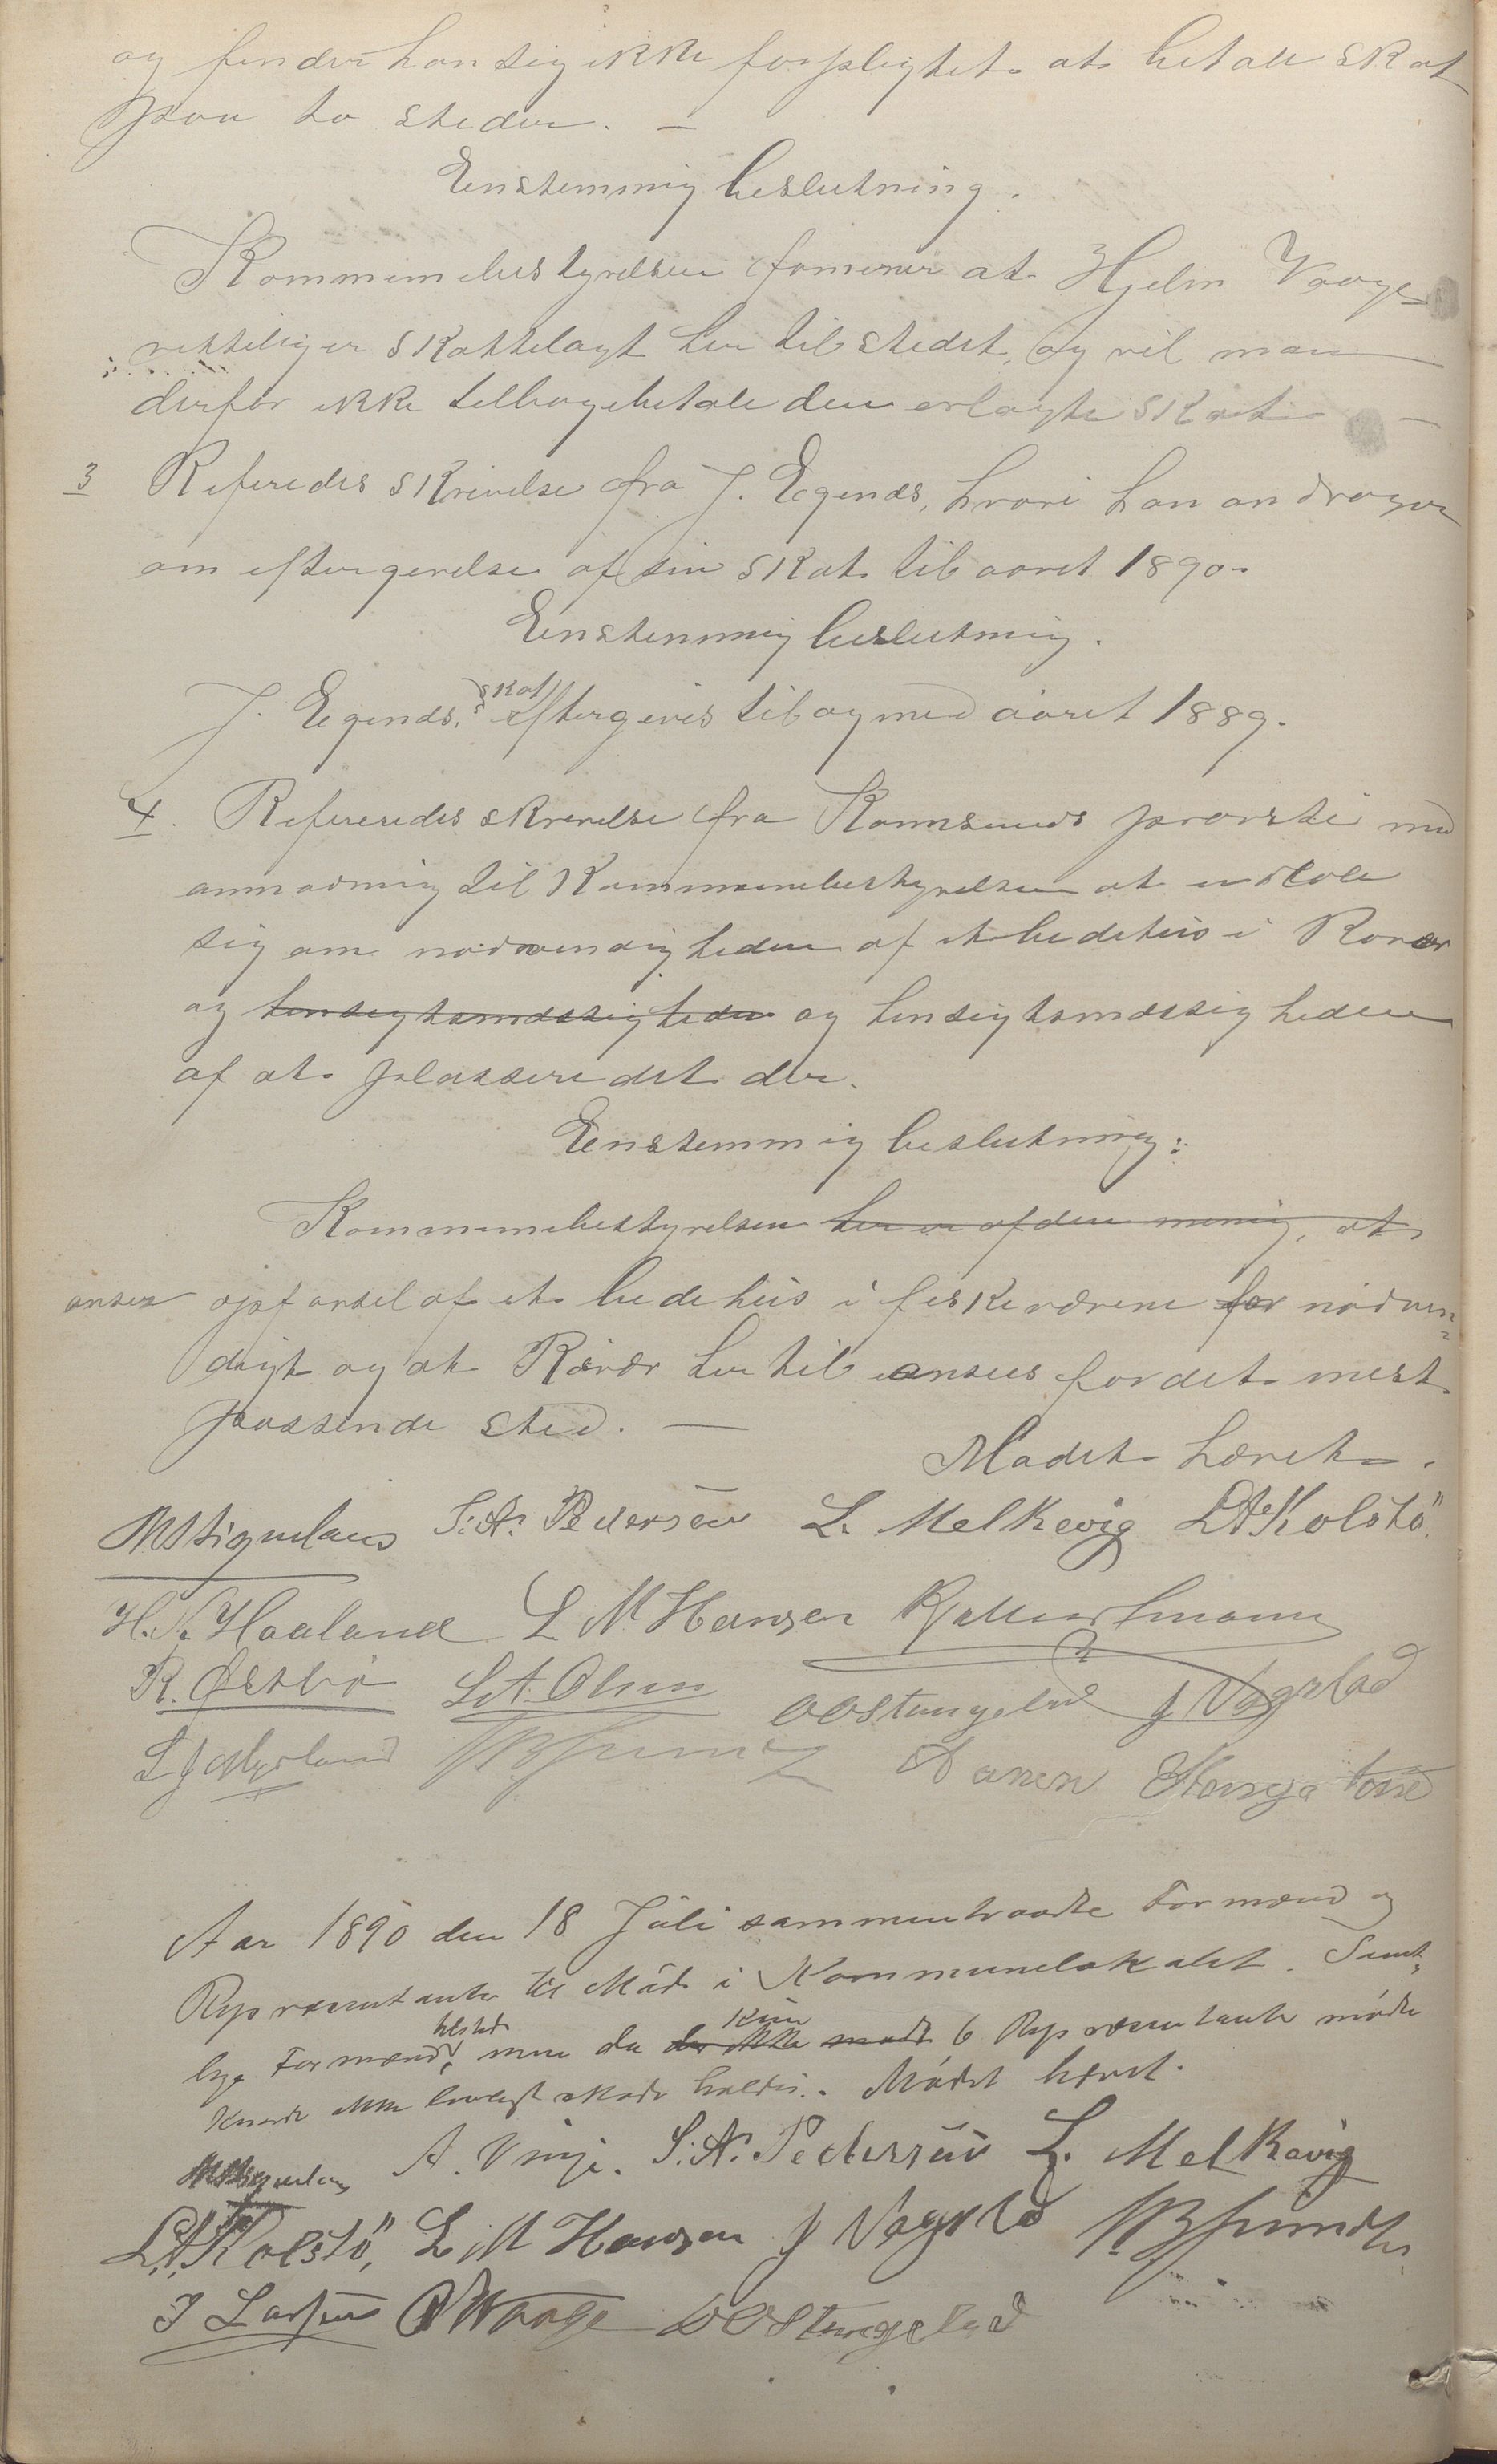 og finder han sig ikke forpligtet at betale skat
paa to steder. —
Enstemmig beslutning.
Kommunebestyrelsen formener at Hjelm Waage
retteligen skattelagt her til stedet, og vil man
derfor ikke tilbagebetale den erlagte skat. —
3 Referedes skrivelse fra J. Egenes, hvori han andrager
om eftergivelse af sin skat til aaret 1890.
Enstemmig beslutning.
skat
J. Egenes, eftergives til og med aaret 1889.
4. Refereredes skrivelse fra Karmsunds provsti med
anmodning til Kommunebestyrelsen at udtale
sig om nødvendigheden af et bedehus i Rovær
og hensigtsmæssigheden og hensigtsmæssigheden
af at plassere det der.
Enstemmig beslutning:
Kommunebestyrelsen her er af den mening, at
anser opførsel af et bedehus i fiskeværene for nødven=
digt og at Røvær her til ansees for det mest
passende sted. —
Mødet hævet.
S. N. Pedersen L. Melkevig L A Kolstö
H. N. Haaland L M Hansen
R. Østbø L. A. Olsen O O Stangeland J Vagslad
L J Myrland
Aar 1890 den 18 Juli sammentraadte Formænd og
Repræsentanter til Møde i Kommunelokalet. Samt=
tilstede kun
lige Formænd, men da der ikke mødte 6 Repræsentanter mødte
kunde ikke lovligt møde holdes. Mødet hævet.
A. Vinje. S. N. Pedersen L. Melkevig
L. A. Kolstö, L M Hansen J Vagslad
J Larsen O Waage O O Stangeland